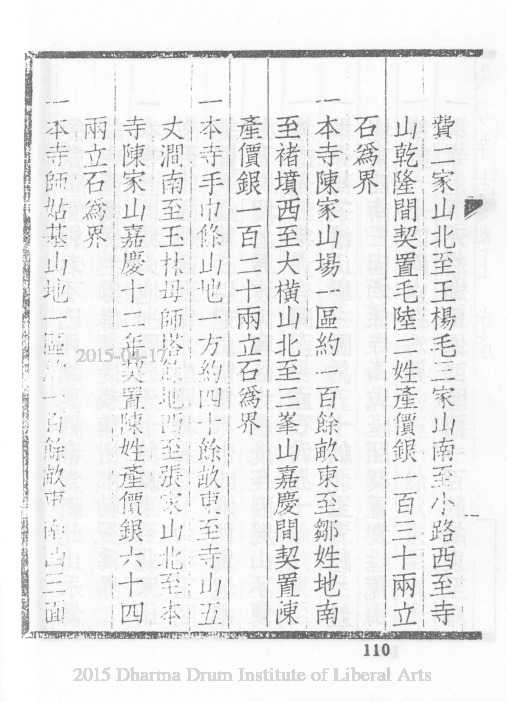 費二家山北至王楊毛三家山南至小路西至寺
山乾隆間契置毛陸二姓產價銀一百三十兩立
石爲界
一本寺陳家山場一區約一百餘畝東至鄒姓地南
至褚墳西至大橫山北至三峯山嘉慶間契置陳
產價銀一百二十兩立石爲界
一本寺手巾條山地一方約四十餘畝東至寺山五
丈澗南至玉林母師塔 地西至張家山北至本
寺陳家山嘉慶十二年契置陳姓產價銀六十四
兩立石爲界
一本寺師姑基山地一區約一百餘畝東南西三面
110
2015-04-17
2015 Dharma Drum Institute of Liberal Arts